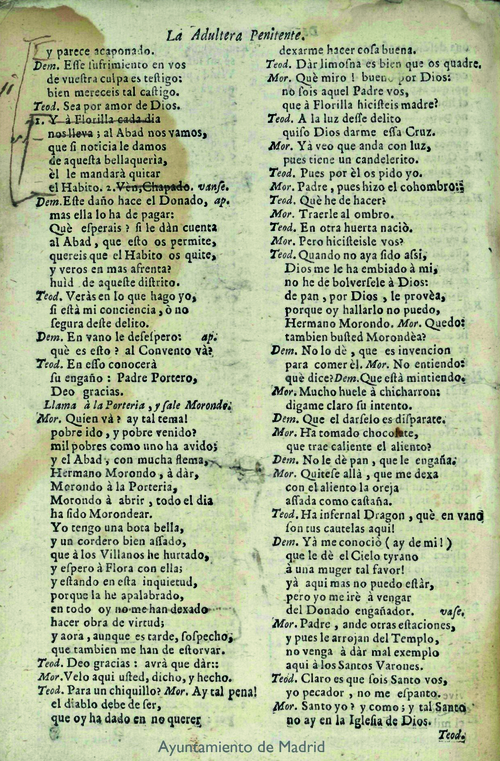 La Adultera Penitente.
y parece acaponado.
Dem. Esse sufrimiento en vos
de vuestra culpa es testigo:
bien mereceis tal castigo.
Teod. Sea por amor de Dios.
1. Y à Florilla cada dia
nos lleva; al Abad nos vamos,
que si noticia le damos
de aquesta bellaqueria,
èl le mandarà quitar
el Habito. 2. Vèn, Chapado. vanse.
Dem. Este daño hace el Donado, ap.
mas ella lo ha de pagar:
Què esperais? si le dàn cuenta
al Abad, que esto os permite,
quereis que el Habito os quite,
y veros en mas afrenta?
huid de aqueste distrito.
Teod. Veràs en lo que hago yo,
si està mi conciencia, ò no
segura deste delito.
Dem. En vano le desespero: ap.
què es esto? al Convento và?
Teod. En esso conocerà
su engaño: Padre Portero,
Deo gracias.
Llama à la Porteria, y sale Morondo.
Mor. Quien và? ay tal tema!
pobre ido, y pobre venido?
mil pobres como uno ha avido;
y el Abad, con mucha flema,
Hermano Morondo, à dàr,
Morondo à la Porteria,
Morondo à abrir, todo el dia
ha sido Morondear.
Yo tengo una bota bella,
y un cordero bien assado,
que à los Villanos he hurtado,
y espero à Flora con ella;
y estando en esta inquietud,
porque la he apalabrado,
en todo oy no me han dexado
hacer obra de virtud;
y aora, aunque es tarde, sospecho,
que tambien me han de estorvar.
Teod. Deo gracias: avrà que dàr::
Mor. Velo aqui usted, dicho, y hecho.
Teod. Para un chiquillo? Mor. Ay tal pena!
el diablo debe de ser,
que oy ha dado en no querer
dexarme hacer cosa buena.
Teod. Dàr limosna es bien que os quadre.
Mor. Què miro! bueno por Dios:
no sois aquel Padre vos,
que à Florilla hicisteis madre?
Teod. A la luz desse delito
quiso Dios darme essa Cruz.
Mor. Yà veo que anda con luz,
pues tiene un candelerito.
Teod. Pues por èl os pido yo.
Mor. Padre, pues hizo el cohombro::
Teod. Què he de hacer?
Mor. Traerle al ombro.
Teod. En otra huerta naciò.
Mor. Pero hicisteisle vos?
Teod. Quando no aya sido assi,
Dios me le ha embiado à mi,
no he de bolversele à Dios:
de pan, por Dios, le provèa,
porque oy hallarlo no puedo,
Hermano Morondo. Mor. Quedo:
tambien busted Morondèa?
Dem. No lo dè, que es invencion
para comer èl. Mor. No entiendo:
què dice? Dem. Que està mintiendo.
Mor. Mucho huele à chicharron:
digame claro su intento.
Dem. Que el darselo es disparate.
Mor. Ha tomado chocolate,
que trae caliente el aliento?
Dem. No le dè pan, que le engaña.
Mor. Quitese allà, que me dexa
con el aliento la oreja
assada como castaña.
Teod. Ha infernal Dragon, què en vano
son tus cautelas aqui!
Dem. Yà me conociò (ay de mi!)
que le dè el Cielo tyrano
à una muger tal favor!
yà aqui mas no puedo estàr,
pero yo me irè à vengar
del Donado engañador. vase.
Mor. Padre, ande otras estaciones,
y pues le arrojan del Templo,
no venga à dàr mal exemplo
aqui à los Santos Varones.
Teod. Claro es que sois Santo vos,
yo pecador, no me espanto.
Mor. Santo yo? y como; y tal Santo
no ay en la Iglesia de Dios.
Teod.
Ayuntamiento de Madrid